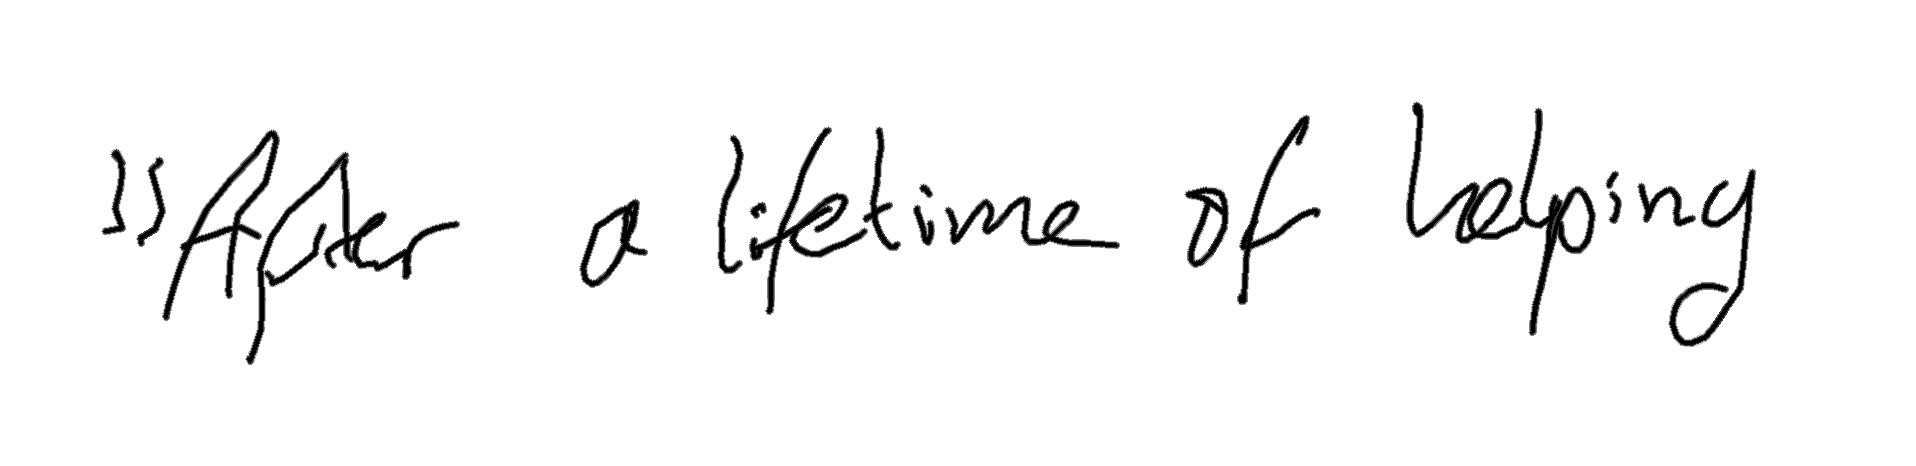 "After a lifetime of helping